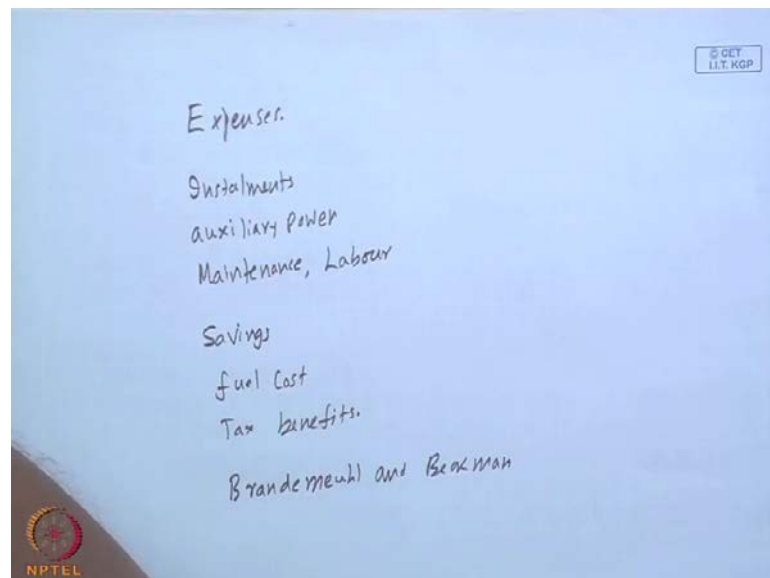 © CET
I.I.T. KGP
Expenses.
Instalments
auxiliary power
Maintenance, Labour
Savings
fuel Cost
Tax benefits.
Brandemeuhl and Beckman
NPTEL